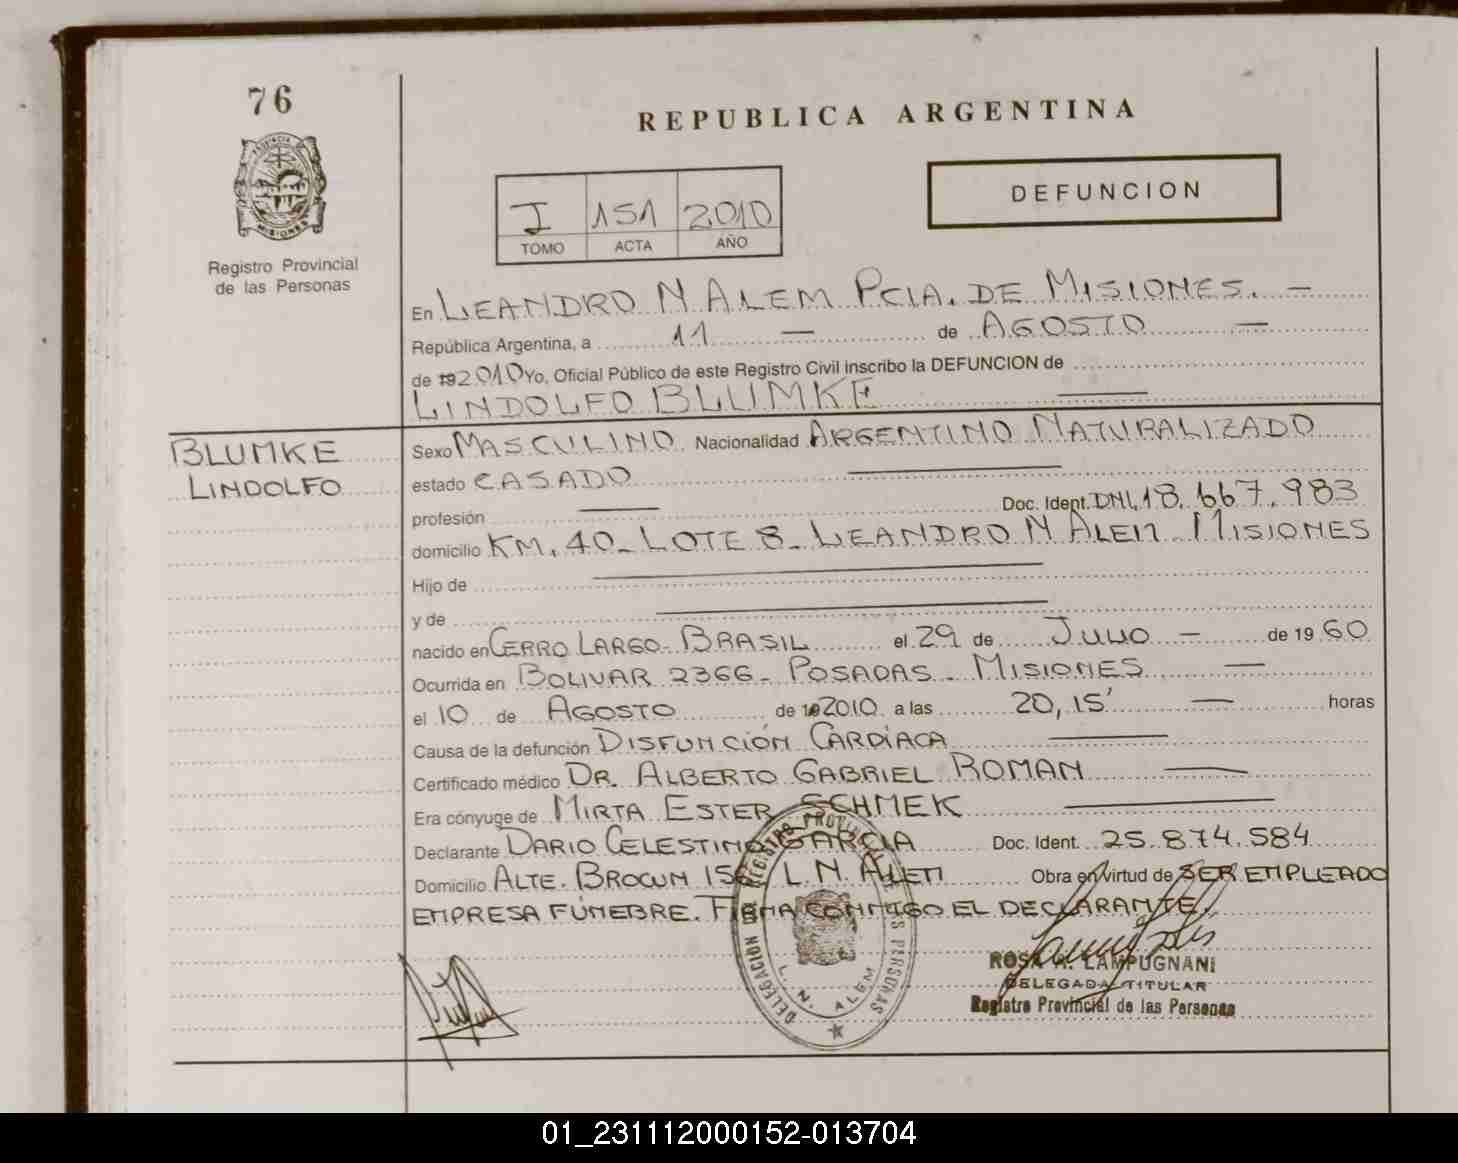 76
REPUBLICA ARGENTINA
PROVINCIA
MISIONES
Registro Provincial
de las Personas
DEFUNCION
I 151 2010
TOMO ACTA AÑO
En LEANDRO N ALEM PCIA. DE MISIONES. —
República Argentina, a 11 — de AGOSTO —
de 192010 Yo, Oficial Público de este Registro Civil inscribo la DEFUNCION de
LINDOLFO BLUMKE
BLUMKE
LINDOLFO
Sexo MASCULINO Nacionalidad ARGENTINO NATURALIZADO
estado CASADO
profesión — Doc. Ident. DNI, 18.667.983
domicilio KM. 40_ LOTE 8_ LEANDRO N ALEM MISIONES
Hijo de
y de
nacido en CERRO LARGO_ BRASIL el 29 de JULIO — de 1960
Ocurrida en BOLIVAR 2366_ POSADAS_ MISIONES —
el 10 de AGOSTO de 192010 a las 20,15' — horas
Causa de la defunción DISFUNCIÓN CARDÍACA
Certificado médico DR. ALBERTO GABRIEL ROMAN
Era cónyuge de MIRTA ESTER SCHMEK
Declarante DARIO CELESTINO GARCIA Doc. Ident. 25.874.584
Domicilio ALTE. BROWN L. N. ALEM Obra en virtud de SER EMPLEADO
EMPRESA FÚNEBRE. FIRMA CONMIGO EL DECLARANTE.
DELEGACION DEL REGISTRO PROVINCIAL DE LAS PERSONAS
L. N. ALEM
ROSA A. LAMPUGNANI
DELEGADA TITULAR
Registro Provincial de las Personas
01_231112000152-013704